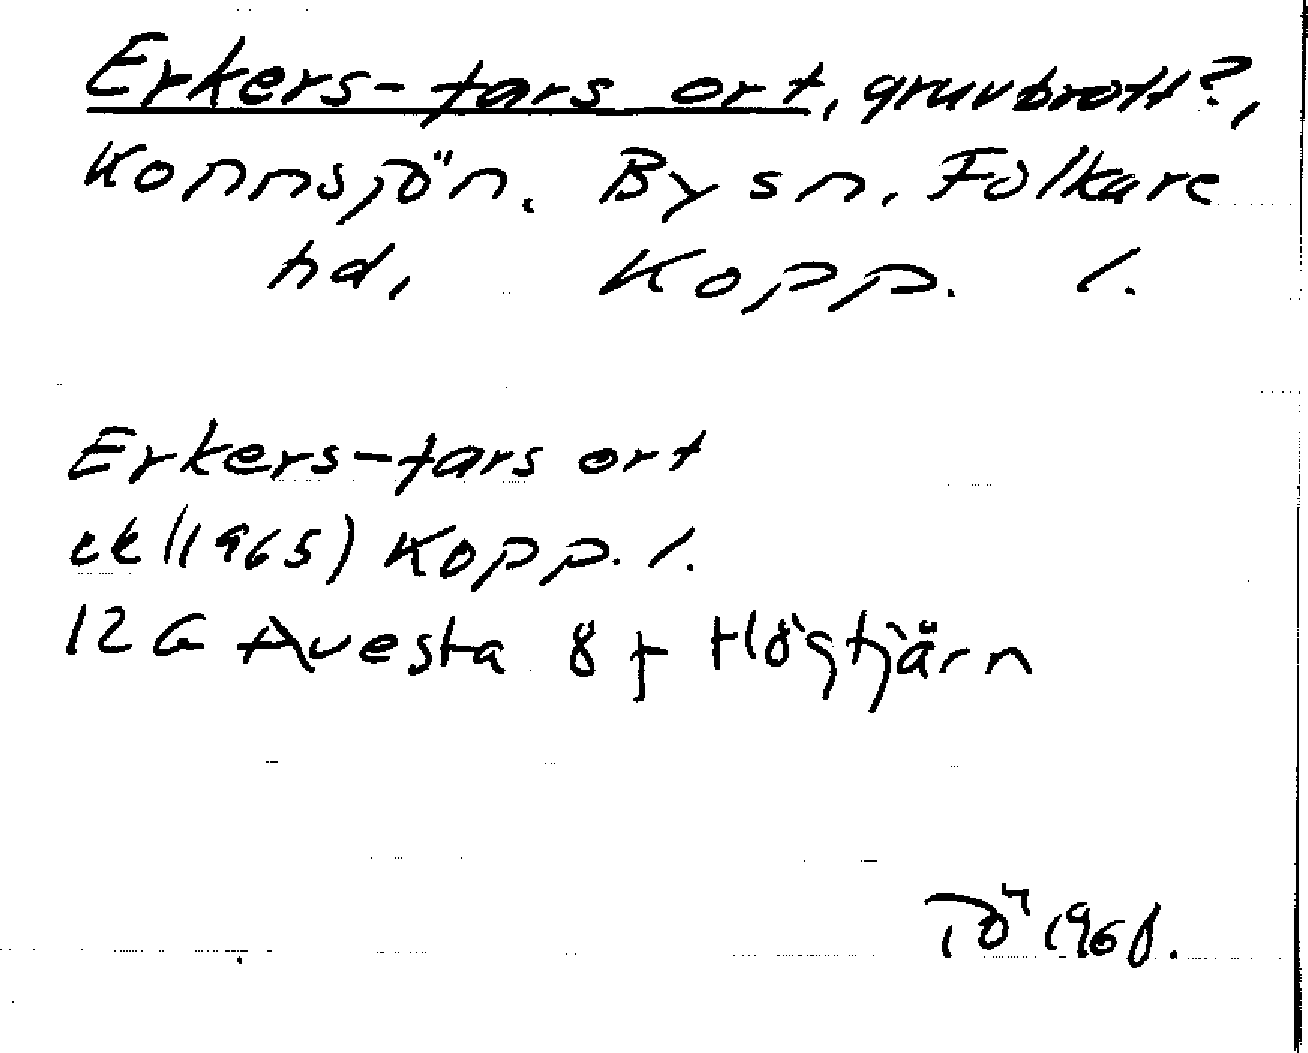 Erkers-fars ort, gruvbrott?,
Konnsjön. By sn. Folkare
hd, Kopp. l.
Erkers-fars ort
ek (1965) Kopp. l.
12 G Avesta 8 f Högtjärn
TÖ 1968.